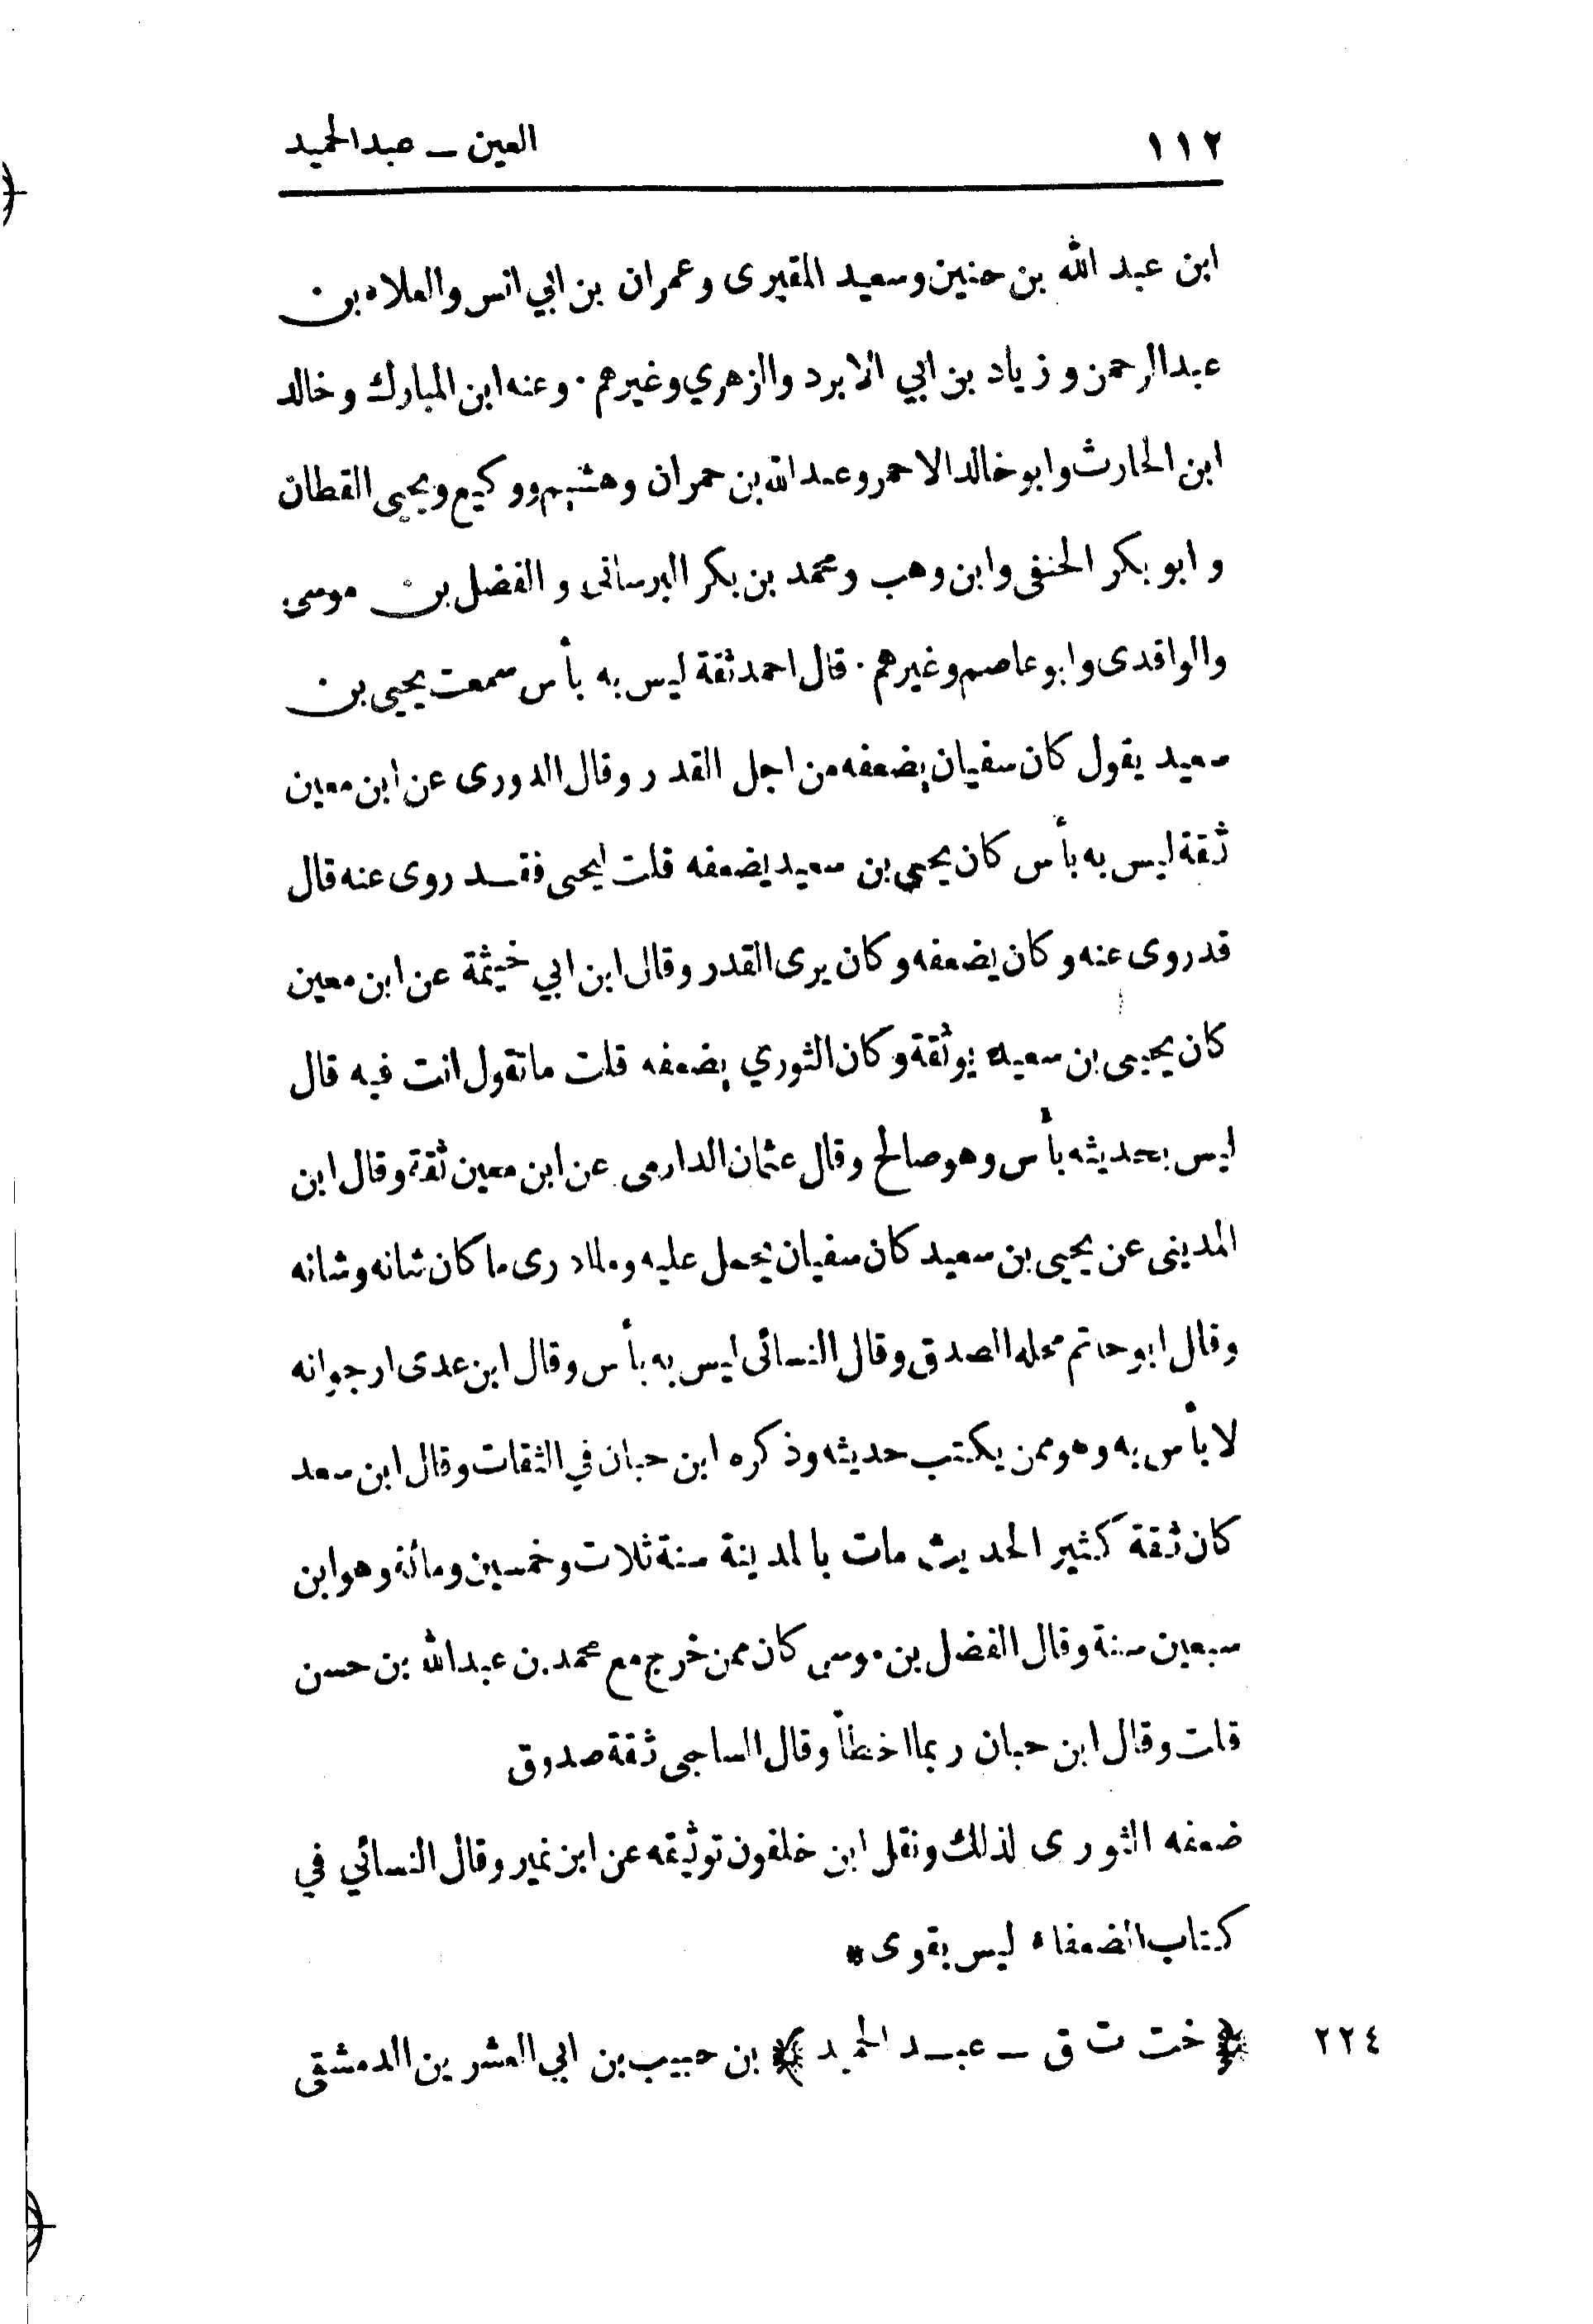 ١١٢
العين ــ عبدالحميد
ابن عبد الله بن حنين وسعيد المقبرى وعمران بن ابي انس والعلاء بن
عبدالرحمن وزياد بن ابي الابرد والزهري وغيرهم . وعنه ابن المبارك وخالد
ابن الحارث وابو خالد الاحمر وعبد الله بن حمران وهشيم ووكيع ويحيى القطان
وابو بكر الحنفى وابن وهب ومحمد بن بكر البرسانى والفضل بن موسى
والواقدى وابو عاصم وغيرهم . قال احمد ثقة ليس به بأس سمعت يحيى بن
سعيد يقول كان سفيان يضعفه من اجل القدر وقال الدورى عن ابن معين
ثقة ليس به بأس كان يحيى بن سعيد يضعفه قلت ليحيى فقد روى عنه قال
قد روى عنه وكان يضعفه وكان يرى القدر وقال ابن ابي خيثمة عن ابن معين
كان يحيى بن سعيد يوثقة وكان الثوري يضعفه قلت ما تقول انت فيه قال
ليس بحديثه بأس وهو صالح وقال عثمان الدارمى عن ابن معين ثقة وقال ابن
المدينى عن يحيى بن سعيد كان سفيان يحمل عليه وما ادرى ما كان شانه وشانه
وقال ابو حاتم محله الصدق وقال النسائى ليس به بأس وقال ابن عدى ارجو انه
لا بأس به وهو ممن يكتب حديثه وذكره ابن حبان في الثقات وقال ابن سعد
كان ثقة كثير الحديث مات بالمدينة سنة ثلاث وخمسين ومائة وهو ابن
سبعين سنة وقال الفضل بن موسى كان ممن خرج مع محمد بن عبد الله بن حسن
قلت وقال ابن حبان ربما اخطأ وقال الساجى ثقة صدوق
ضعفه الثورى لذلك ونقل ابن خلفون توثيقه عن ابن نمير وقال النسائي في
كتاب الضعفاء ليس بقوى *
٢٢٤ ﴿ خت ت ق ــ عبد الحميد ﴾ بن حبيب بن ابي العشرين الدمشقى